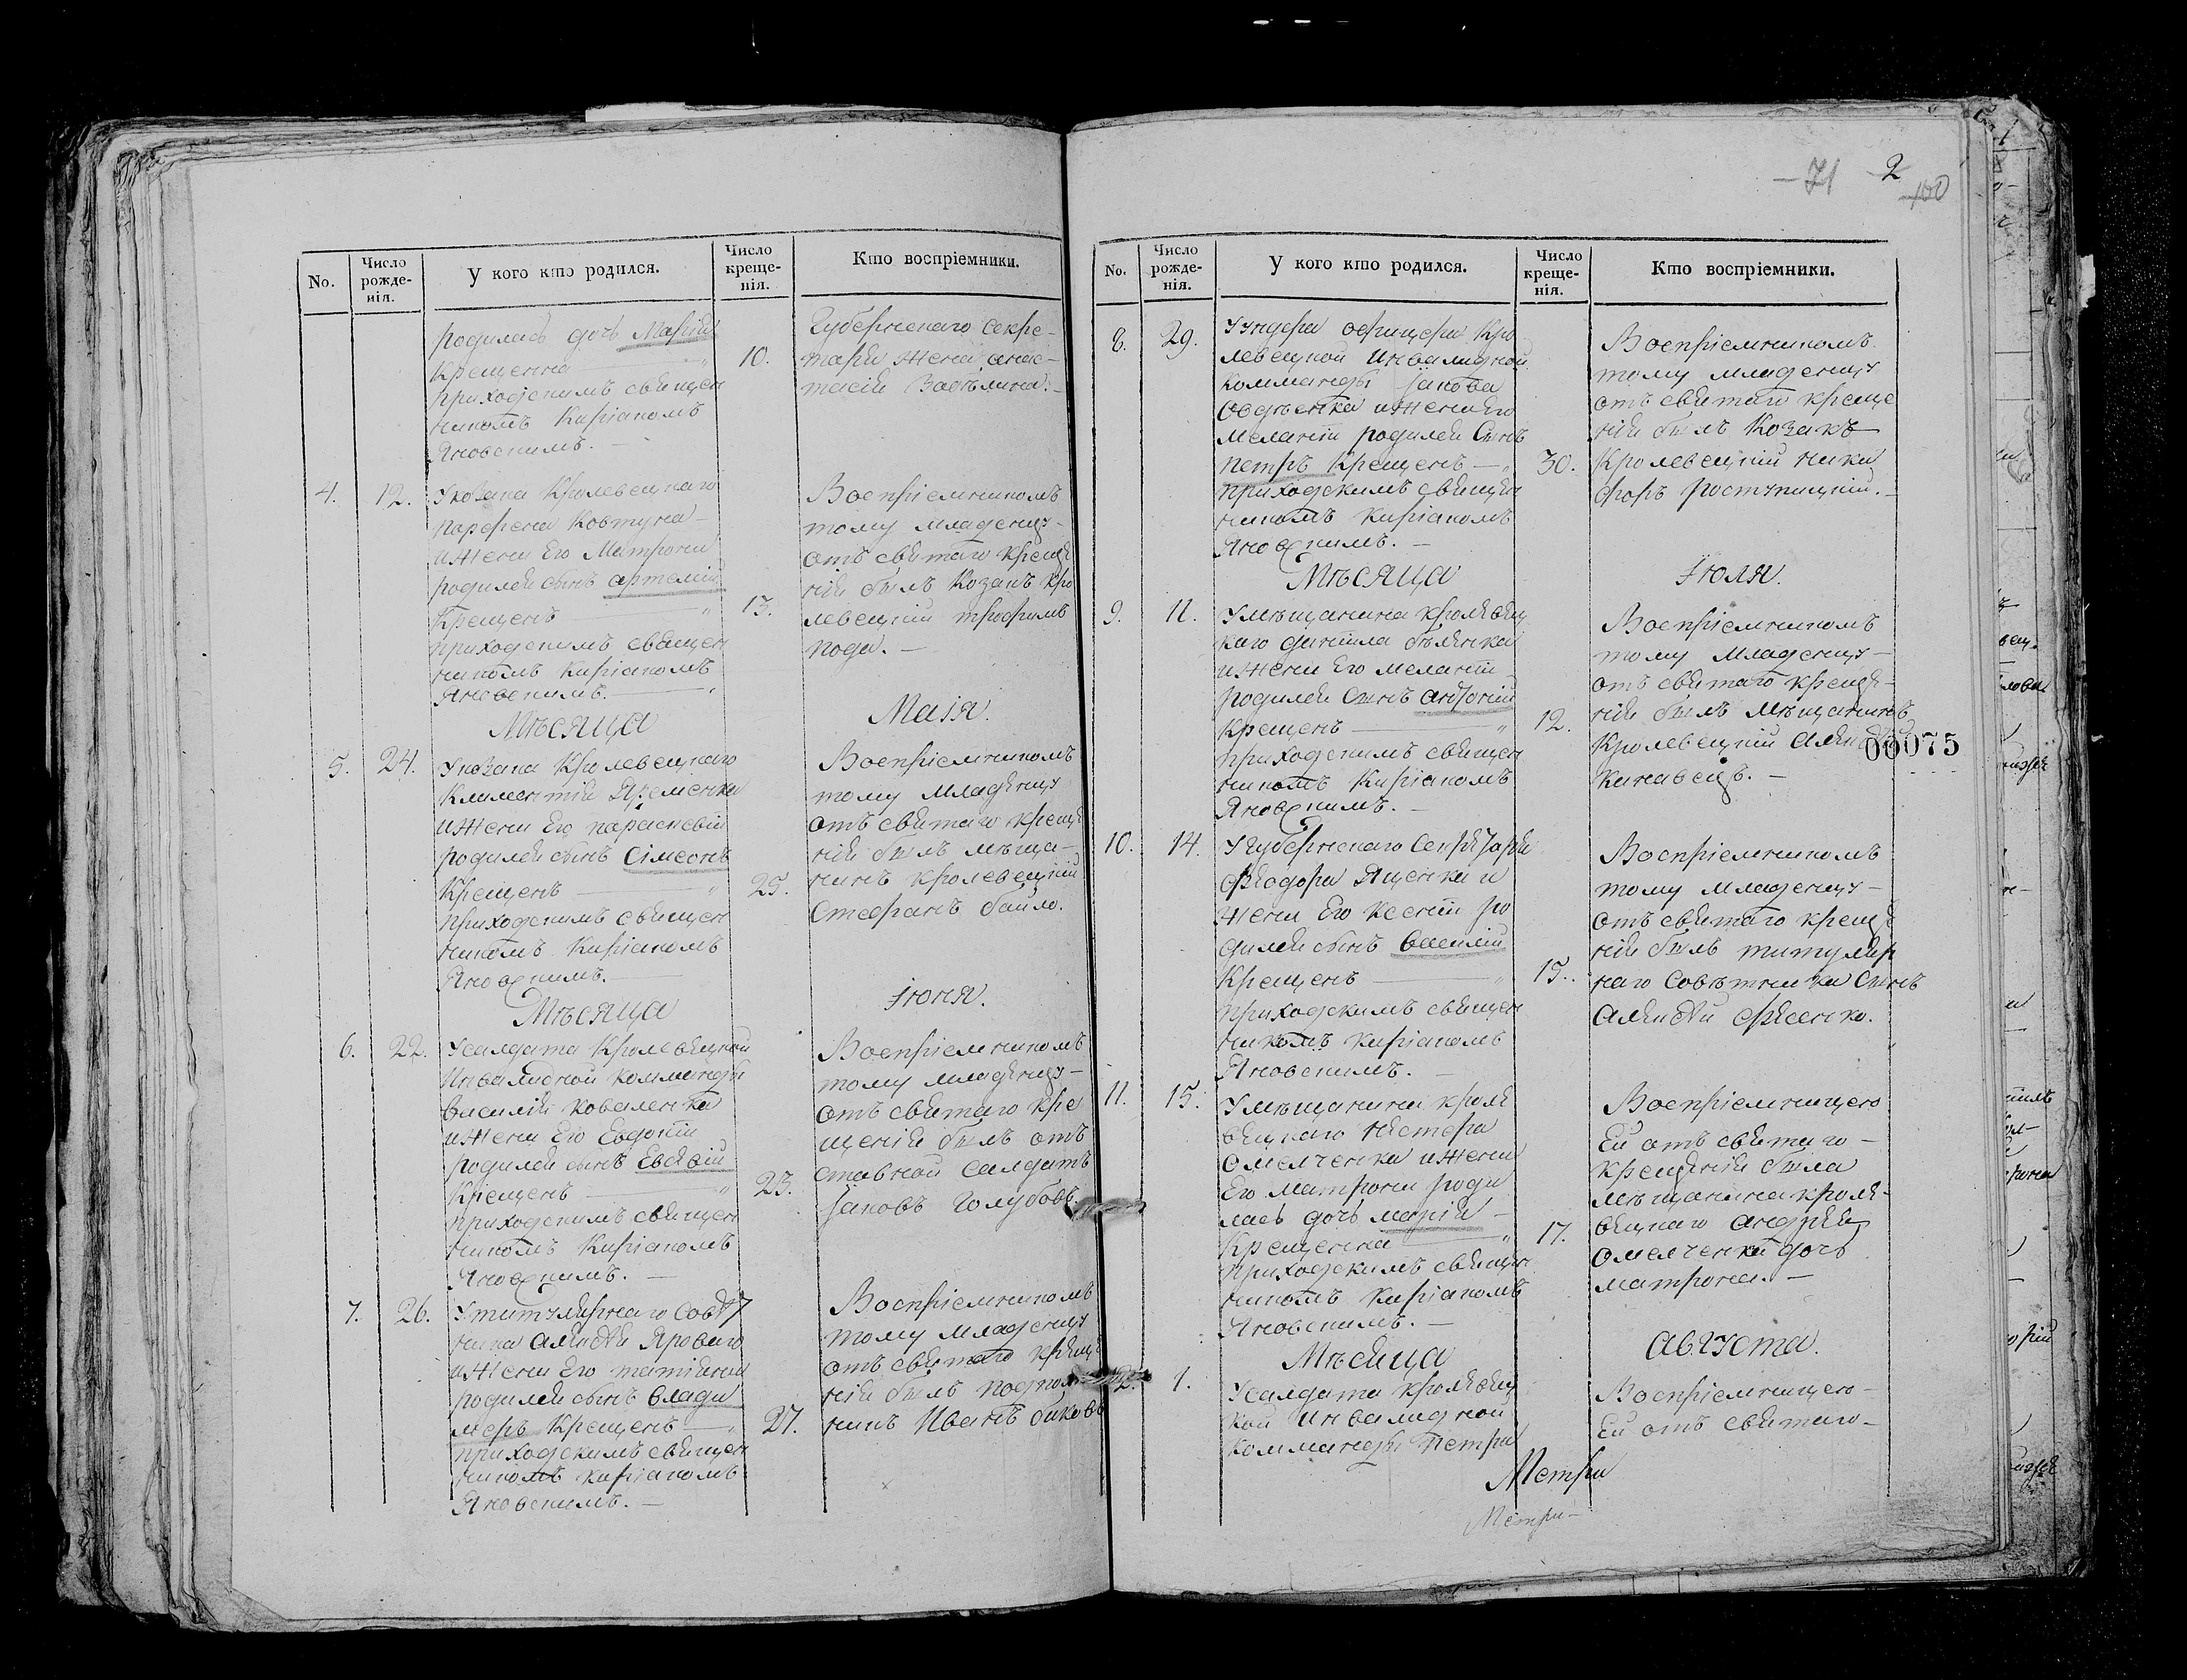 No.
Число рожде-нія.
У кого кто родился.
Число креще-нія.
Кто воспріемники.
родилась дочь Марія
Крещенна — 10.
приходскимъ священ
никомъ Киріакомъ
Яновскимъ. —
Губернскаго Секре-
таря жена анас-
тасія
4. 12. У козака Кролевецкаго
парфена Ковтуна
и жены Его Матроны
родился сынъ артемій
Крещенъ — 13.
приходскимъ священ
никомъ Киріакомъ
Яновскимъ. —
Воспріемникомъ
тому младенцу
отъ святаго креще
нія былъ Козакъ кро
левецкій трофимъ
пода. —
Мѣсяца Маія.
5. 24. У козака Кролевецкаго
Климентія Яременка
и жены Его параскевіи
родился сынъ Сімеонъ
Крещенъ — 25.
приходскимъ священ
никомъ Киріакомъ
Яновскимъ. —
Воспріемникомъ
тому младенцу
отъ святаго креще
нія былъ мѣща-
нинъ кролевецкій
Стефанъ байло.
Мѣсяца Іюня.
6. 22. У салдата Кролевецкой
Инвалидной комманды
василія коваленка
и жены Его Евдокіи
родился сынъ Евсевій
Крещенъ — 23.
приходскимъ священ
никомъ Киріакомъ
Яновскимъ. —
Воспріемникомъ
тому младенцу —
отъ святаго кре
щенія былъ отъ
ставной салдатъ
Іаковъ Голубовъ.
7. 26. У титулярнаго Совѣт
ника Алексѣя Яроваго
и жены Его татіянии
родился сынъ влади
меръ Крещенъ — 27.
приходскимъ священ
никомъ киріакомъ
Яновскимъ. —
Воспріемникомъ
тому младенцу
отъ святаго креще
нія былъ
никъ Иванъ биковъ
71 2
100
No.
Число рожде-нія.
У кого кто родился.
Число креще-нія.
Кто воспріемники.
8. 29. У ундера офицера Кро
левецкой Инвалидной
комманды Іакова
и жены Его
Меланіи родился Сынъ
петръ Крещенъ — 30.
приходскимъ священ
никомъ киріакомъ
Яновскимъ. —
Воспріемникомъ
тому младенцу
отъ святаго креще
нія былъ Козакъ
Кролевецкій ники
форъ роступицкій. —
Мѣсяца Іюля.
9. 11. У мѣщанина кролевец
каго даніила бѣлянка
и жены Его меланіи
родился Сынъ антоній
Крещенъ — 12.
приходскимъ священ
никомъ Киріакомъ
Яновскимъ. —
Воспріемникомъ
тому Младенцу —
отъ святаго креще-
нія былъ Мѣщанинъ
Кролевецкій
канавецъ. —
00075
10. 14. У губернскаго Секретаря
Феодора Яценка и
жены Его Ксеніи ро
дился сынъ василій
Крещенъ — 15.
приходскимъ священ
никомъ киріакомъ
Яновскимъ. —
Воспріемникомъ
тому младенцу —
отъ святаго креще
нія былъ титуляр
наго Совѣтника Сынъ
алексѣй Фесенко.
11. 15. У мѣщанина кроле
вецкаго Нестера
Омелченка и жены
Его матроны роди
лась дочь марія —
Крещенна — 17.
приходскимъ священ
никомъ Киріакомъ
Яновскимъ. —
Воспріемницею
Ей отъ святаго —
крещенія была
мѣщанина кроле-
вецкаго андрея
Омелченка дочь
матрона. —
Мѣсяца Августа.
12. 1. У салдата кролевец
кой Инвалидной
комманды Петра
Воспріемницею —
Ей отъ святаго —
Метри
Метри—